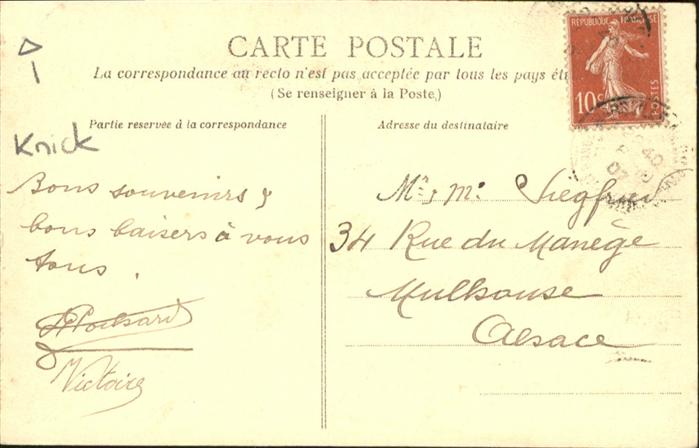 CARTE POSTALE
La correspondance au recto n'est pas acceptée par tous les pays
(Se renseigner à la Poste.)
REPUBLIQUE FRANÇAISE
10c
POSTES
Partie reservée à la correspondance
Adresse du destinataire
Knick
Bons souvenirs &
bons baisers à vous
tous.
Victoire
Mr & Me Siegfried
34 Rue du Manège
Mulhouse
Alsace